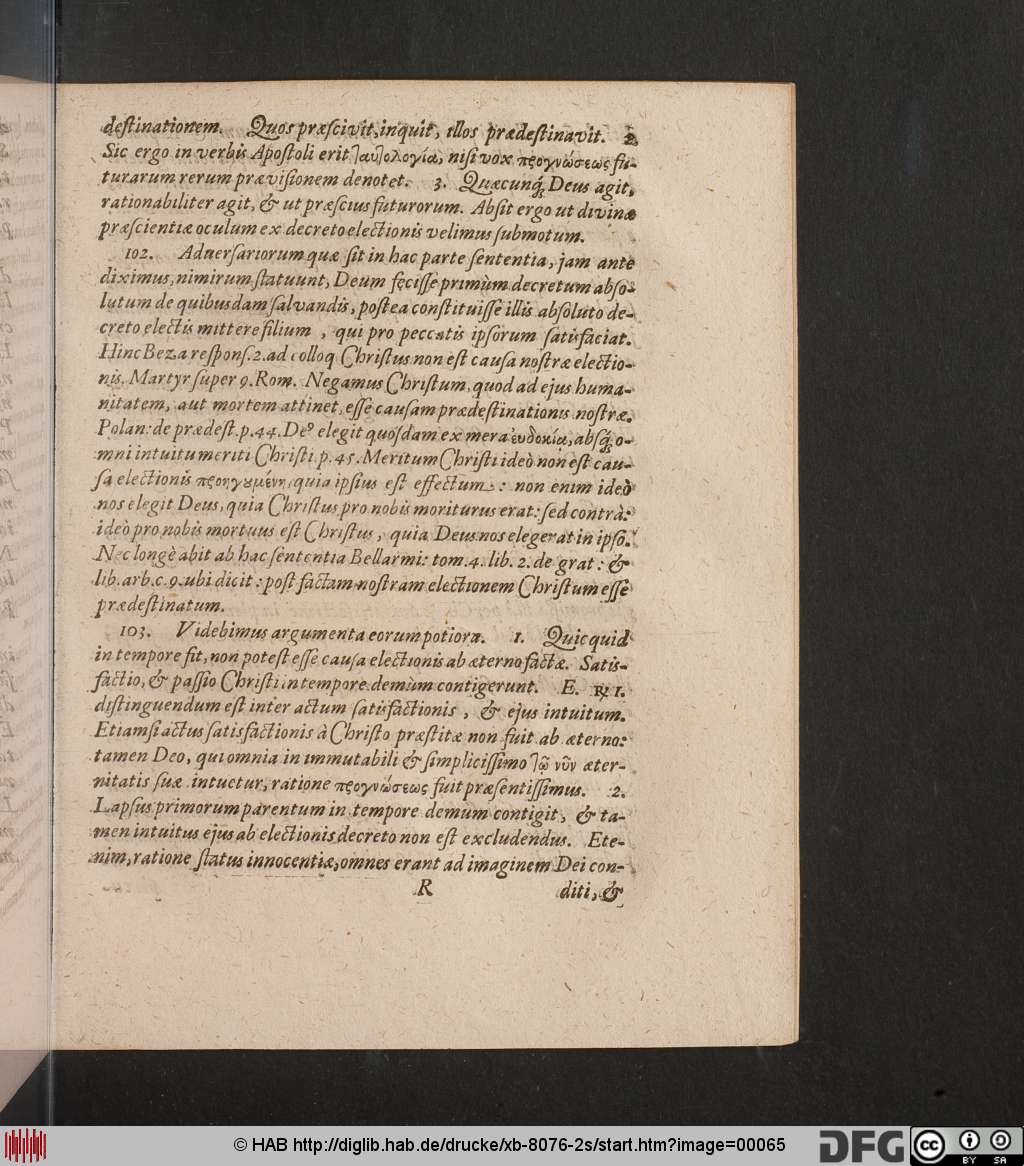 destinationem. Quos præscivit, inquit, illos prædestinavit. 2.
Sic ergo in verbis Apostoli erit ταυτολογία, nisi vox προγνώσεως fu-
turarum rerum prævisionem denotet. 3. Quæcunq́ Deus agit,
rationabiliter agit, & ut præscius futurorum. Absit ergo ut divinæ
præscientiæ oculum ex decreto electionis velimus submotum.
102. Adversariorum quæ sit in hac parte sententia, jam ante
diximus, nimirum statuunt, Deum fecisse primùm decretum abso-
lutum de quibusdam salvandis, postea constituisse illis absoluto de-
creto electis mittere filium, qui pro peccatis ipsorum satisfaciat.
Hinc Beza respons. 2. ad colloq Christus non est causa nostræ electio-
nis. Martyr super 9. Rom. Negamus Christum, quod ad ejus huma-
nitatem, aut mortem attinet, esse causam prædestinationis nostræ.
Polan: de prædest. p. 44. Deꝰ elegit quosdam ex mera ευδοκία, absq́; o-
mni intuitu meriti Christi. p. 45. Meritum Christi ideò non est cau-
sa electionis προηγουμένη, quia ipsius est effectum: non enim ideò
nos elegit Deus, quia Christus pro nobis moriturus erat: sed contrà:
ideò pro nobis mortuus est Christus, quia Deus nos elegerat in ipso.
Nec longè abit ab hac sententia Bellarmi: tom. 4. lib. 2. de grat: &
lib. arb. c. 9. ubi dicit: post factam nostram electionem Christum esse
prædestinatum.
103. Videbimus argumenta eorum potiora. 1. Quicquid
in tempore fit, non potest esse causa electionis ab æterno factæ. Satis-
factio, & passio Christi in tempore demùm contigerunt. E. ℞ 1.
distinguendum est inter actum satisfactionis, & ejus intuitum.
Etiamsi actus satisfactionis à Christo præstitæ non fuit ab æterno:
tamen Deo, qui omnia in immutabili & simplicissimo τῶ νῦν æter-
nitatis suæ intuetur, ratione προγνώσεως fuit præsentissimus. 2.
Lapsus primorum parentum in tempore demùm contigit, & ta-
men intuitus ejus ab electionis decreto non est excludendus. Ete-
nim, ratione status innocentiæ, omnes erant ad imaginem Dei con-
R diti, &
© HAB http://diglib.hab.de/drucke/xb-8076-2s/start.htm?image=00065
DFG
cc BY SA